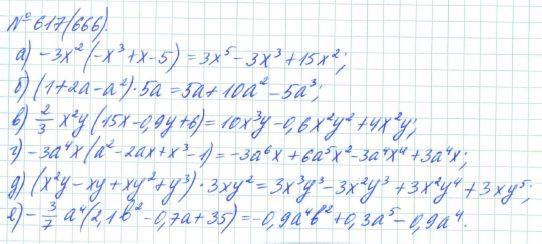 № 617(666).
а) -3x²(-x³+x-5) = 3x⁵-3x³+15x²;
б) (1+2a-a²)·5a=5a+10a²-5a³;
в) 2/3 x²y(15x-0,9y+6)=10x³y-0,6x²y²+4x²y;
г) -3a⁴x(a²-2ax+x³-1)=-3a⁶x+6a⁵x²-3a⁴x⁴+3a⁴x;
д) (x²y-xy+xy²+y³)·3xy²=3x³y³-3x²y³+3x²y⁴+3xy⁵;
е) -3/7 a⁴(2,1b²-0,7a+35)=-0,9a⁴b²+0,3a⁵-0,9a⁴.